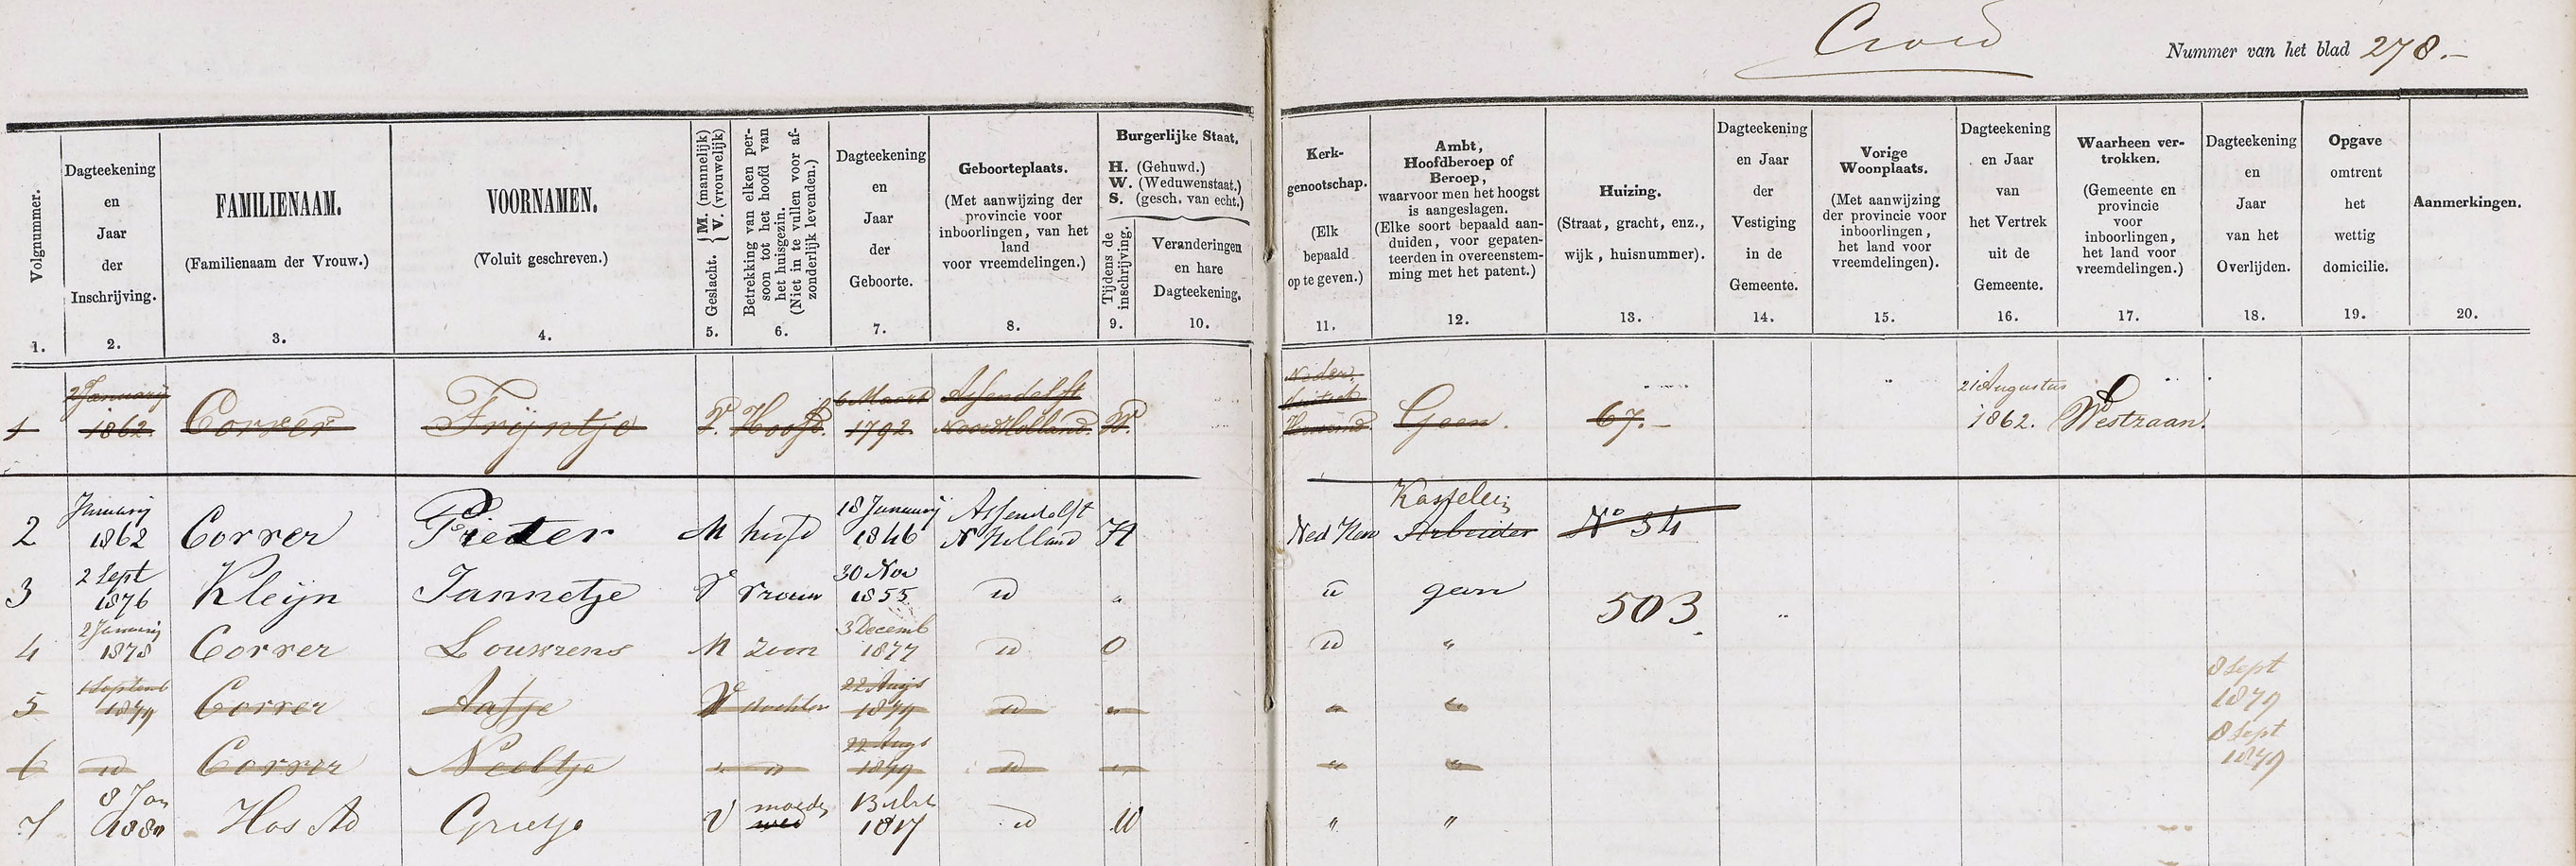 Nummer van het blad 278.-
Volgnummer.
1.
Dagteekening
en
Jaar
der
Inschrijving.
2.
FAMILIENAAM.
(Familienaam der Vrouw.)
3.
VOORNAMEN.
(Voluit geschreven.)
4.
Geslacht. { M. (mannelijk)
V. (vrouwelijk)
5.
Betrekking van elken per-
soon tot het hoofd van
het huisgezin.
(Niet in te vullen voor af-
zonderlijk levenden.)
6.
Dagteekening
en
Jaar
der
Geboorte.
7.
Geboorteplaats.
(Met aanwijzing der
provincie voor
inboorlingen, van het
land
voor vreemdelingen.)
8.
Burgerlijke Staat.
H. (Gehuwd.)
W. (Weduwenstaat.)
S. (gesch. van echt.)
Tijdens de
inschrijving.
9.
Veranderingen
en hare
Dagteekening.
10.
Kerk-
genootschap.
(Elk
bepaald
op te geven.)
11.
Ambt,
Hoofdberoep of
Beroep,
waarvoor men het hoogst
is aangeslagen.
(Elke soort bepaald aan-
duiden, voor gepaten-
teerden in overeenstem-
ming met het patent.)
12.
Huizing.
(Straat, gracht, enz.,
wijk, huisnummer).
13.
Dagteekening
en Jaar
der
Vestiging
in de
Gemeente.
14.
Vorige
Woonplaats.
(Met aanwijzing
der provincie voor
inboorlingen,
het land voor
vreemdelingen).
15.
Dagteekening
en Jaar
van
het Vertrek
uit de
Gemeente.
16.
Waarheen ver-
trokken.
(Gemeente en
provincie
voor
inboorlingen,
het land voor
vreemdelingen.)
17.
Dagteekening
en
Jaar
van het
Overlijden.
18.
Opgave
omtrent
het
wettig
domicilie.
19.
Aanmerkingen.
20.
2 Januarij 6 Maart Assendelft Neder. 21 Augustus
1 1862. Correr Trijntje V. Hoofd. 1792. Noord Holland. W. Hervormd Geen. 67.- 1862. Westzaan.
Januarij 18 Januarij Assendelft Kastelein
2 1862 Correr Pieter M hoofd 1846 N Holland H Ned Herv Arbeider No 34
2 Sept 30 Nov
3 1876 Kleijn Jannetje V vrouw 1855 id " id geen 503
2 Januarij 3 Decemb
4 1878 Correr Louwrens M zoon 1877 id O id "
1 Septemb 22 Augs 8 Sept
5 1879 Correr Aafje V dochter 1879 id " " " 1879
22 Augs 8 Sept
6 id Correr Neeltje " " 1879 id " " " 1879
8 Jan moeder
7 Grietje V wed 1817 id W " "